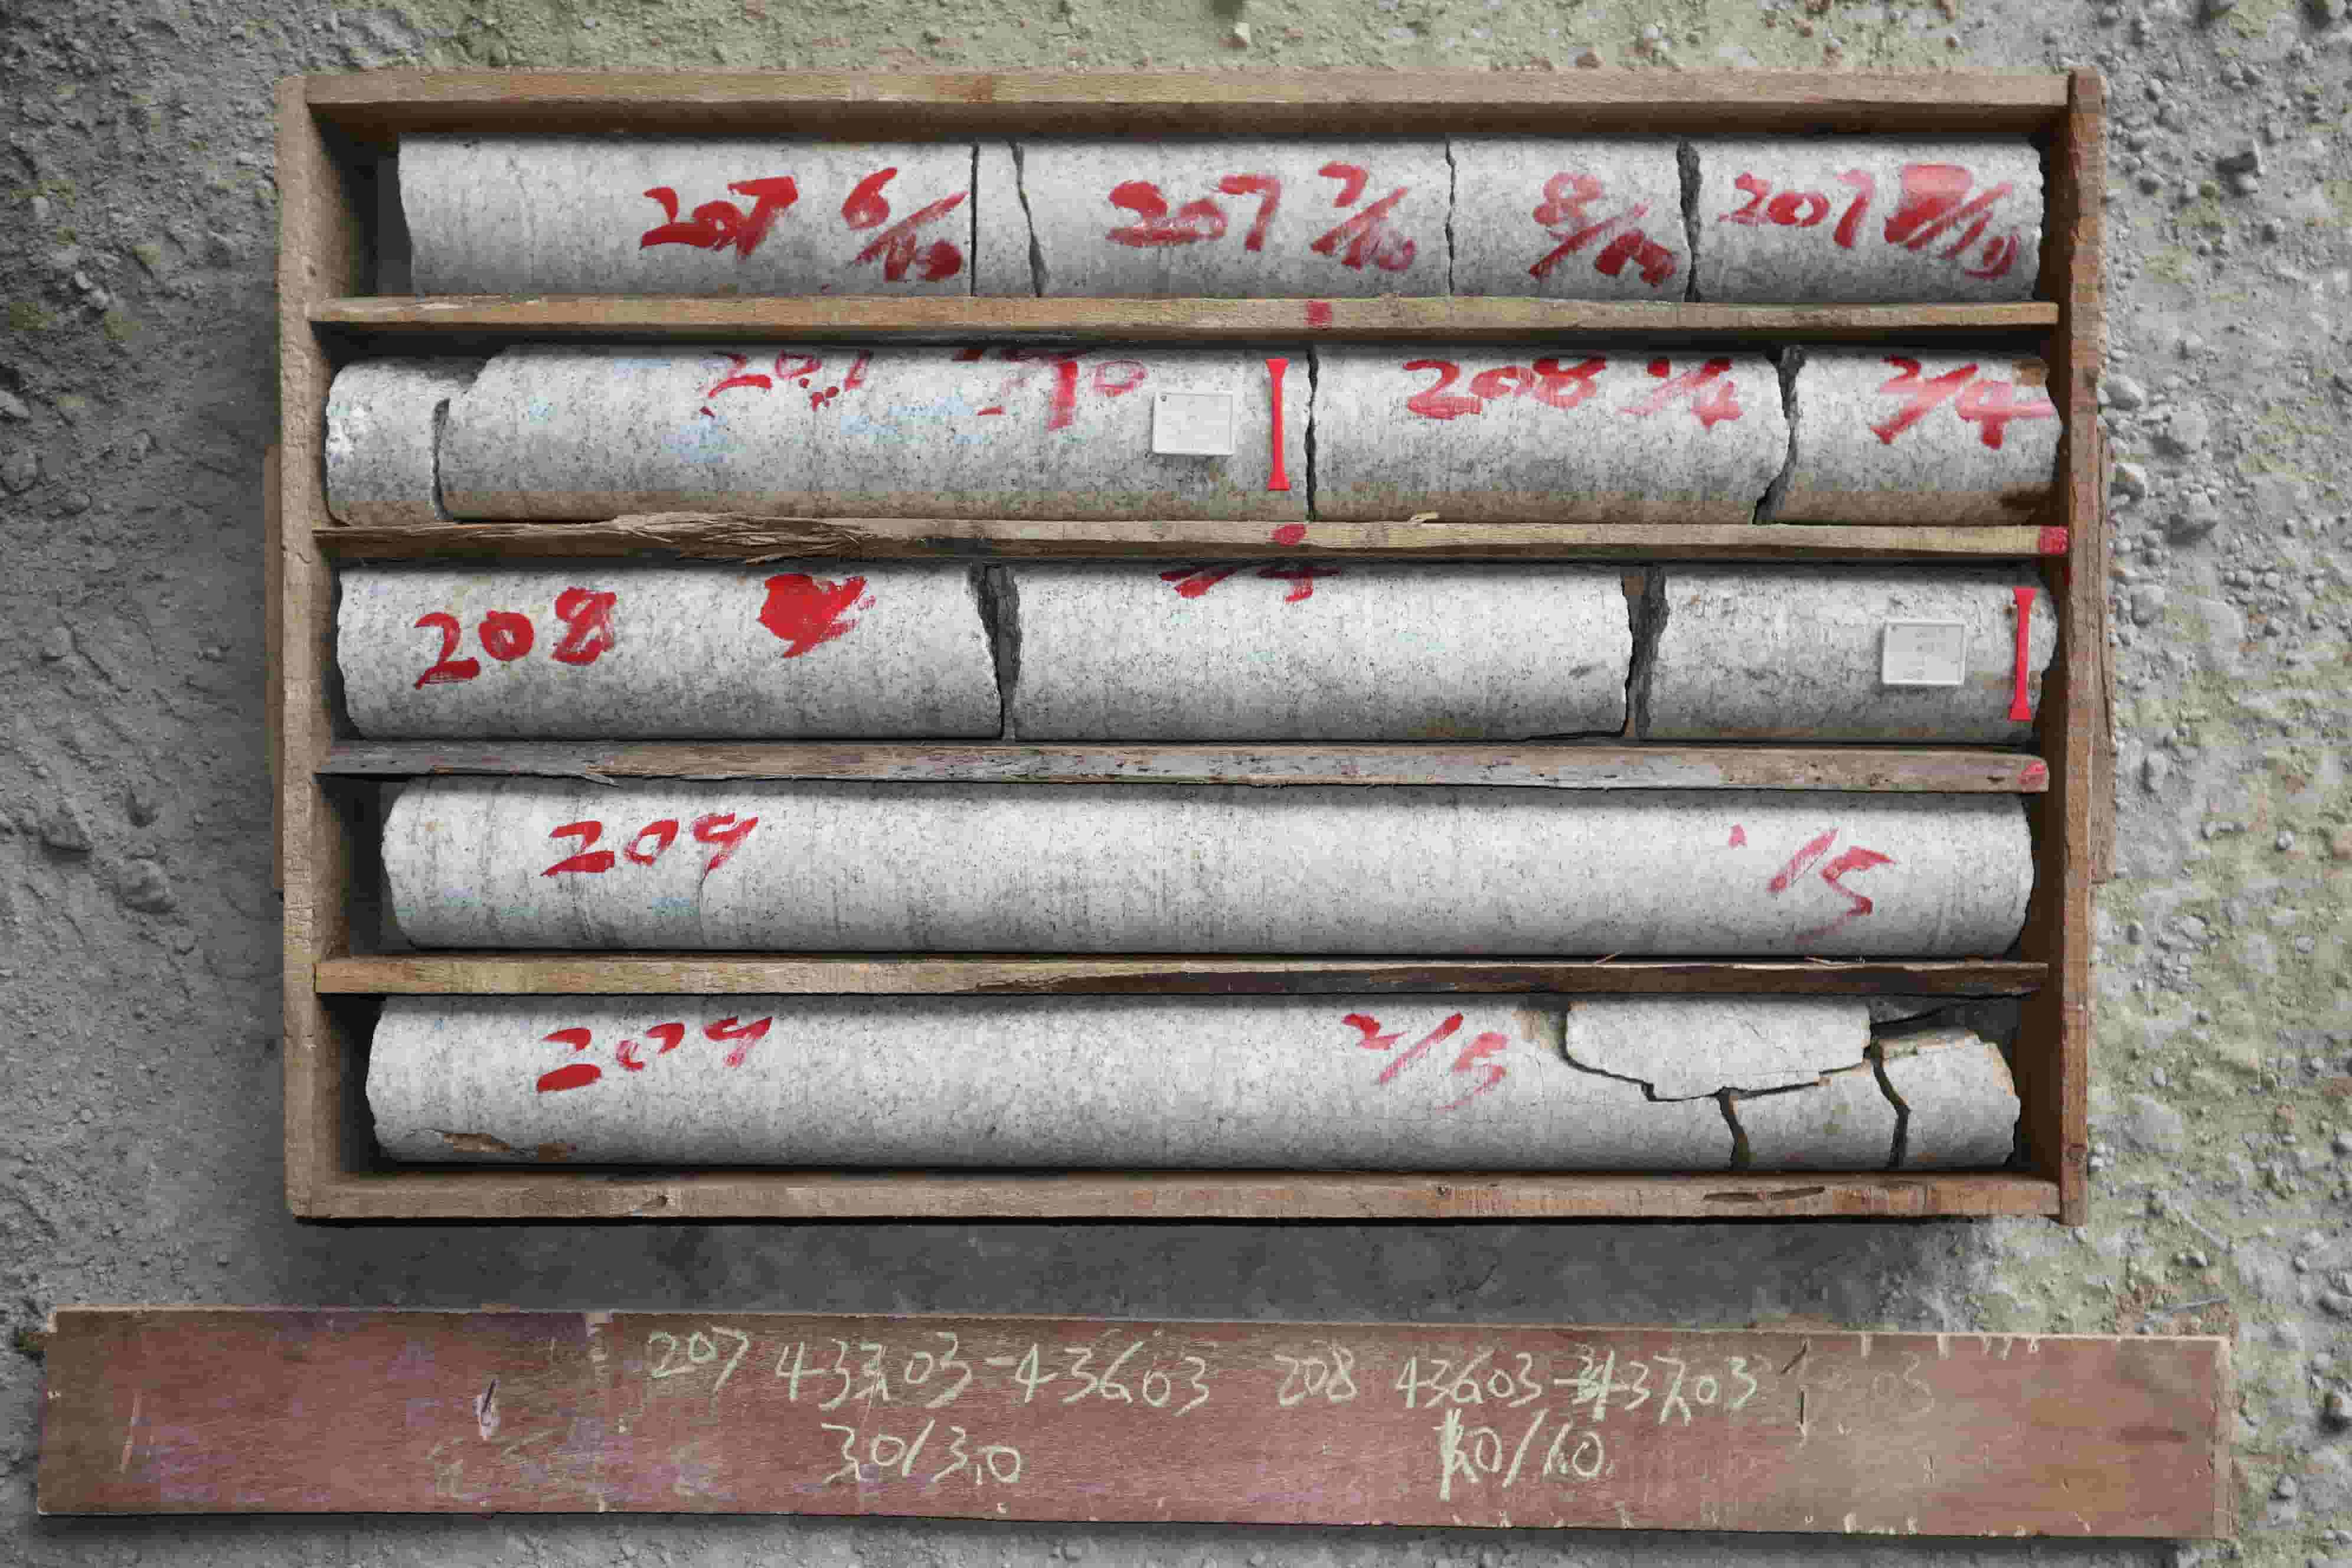 207 6/10 207 7/10 8/10 207 9/10
207 10/10 208 1/4 2/4
208 3/4 4/4
209 1/5
209 2/5
207 433.03-436.03 208 436.03-437.03
3.0/3.0 1.0/1.0